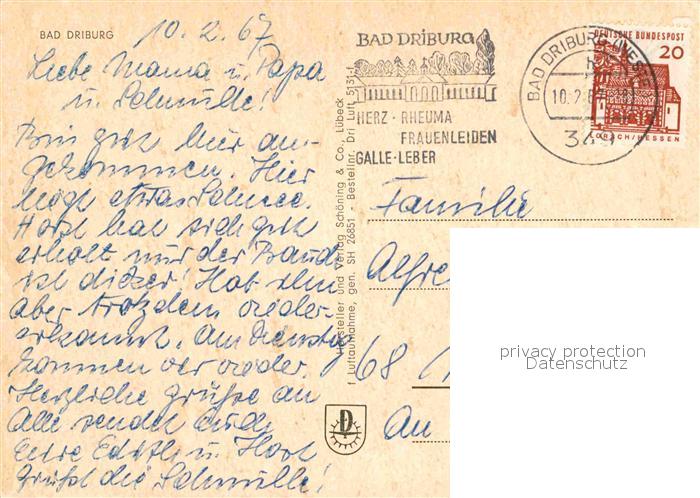 BAD DRIBURG
10.2.67
Liebe Mama u. Papa
u. Schnulle!
Bin gut hier an-
gekommen. Hier
liegt etwas Schnee.
Horst hat sich gut
erholt nur der Bauch
ist dicker! Hab ihn
aber trotzdem wieder-
erkannt. Am Dienstag
kommen wir wieder.
Herzliche Grüße an
Alle sendet Euch
Eure Edith u. Horst
Grüßt die Schnulle!
Hersteller und Verlag Schöning & Co., Lübeck
Luftaufnahme, gen. SH 26851 - Bestellnr. Dri Luft 5131
BAD DRIBURG
HERZ · RHEUMA
FRAUENLEIDEN
GALLE · LEBER
BAD DRIBURG
10.2.67
349
DEUTSCHE BUNDESPOST
20
LORSCH/HESSEN
Familie
Alfre
68
An
D
privacy protection
Datenschutz